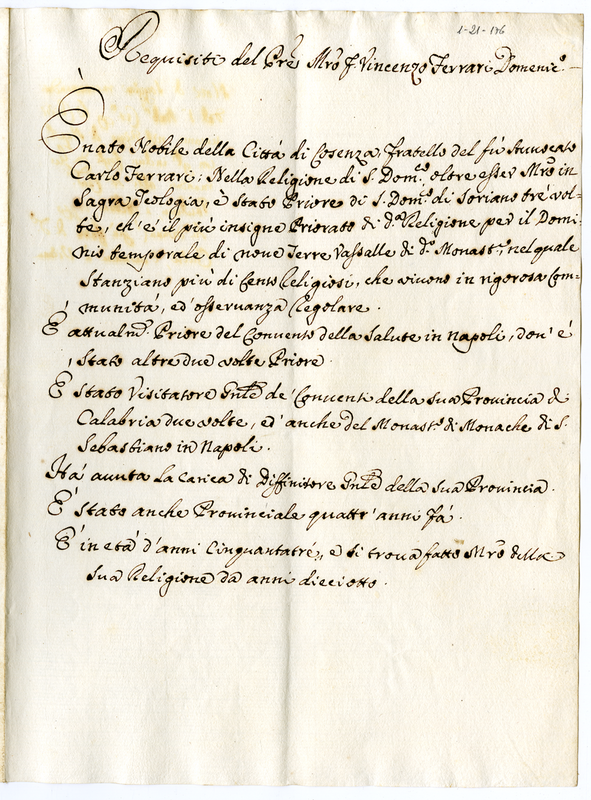 1-21-176
Requisiti del Pre Mro F. Vincenzo Ferrari Domenic.o
È nato Nobile della Città di Cosenza, fratello del fù Avvocato
Carlo Ferrari; Nella Religione di S. Dom.co oltre esser Mro in
Sagra Teologia, è stato Priore di S. Dom.co di Soriano trè vol=
te, ch'è il più insigne Priorato di d.a Religione per il Domi=
nio temporale di nove Terre Vassalle di d.o Monast.o, nel quale
stanziano più di Cento Religiosi, che vivono in rigorosa Com=
munità, ed'osservanza Regolare.
È attualm.te Priore del Convento della Salute in Napoli, dov'è
stato altre due volte Priore.
È stato Visitatore Gnle de' Conventi della sua Provincia di
Calabria due volte, ed'anche del Monast.o di Monache di S.
Sebastiano in Napoli.
Hà avuta la Carica di Diffinitore Gnle della sua Provincia.
È stato anche Provinciale quattr'anni fà.
È in età d'anni Cinquantatrè, e si trova fatto Mro della
sua Religione da anni dieciotto.